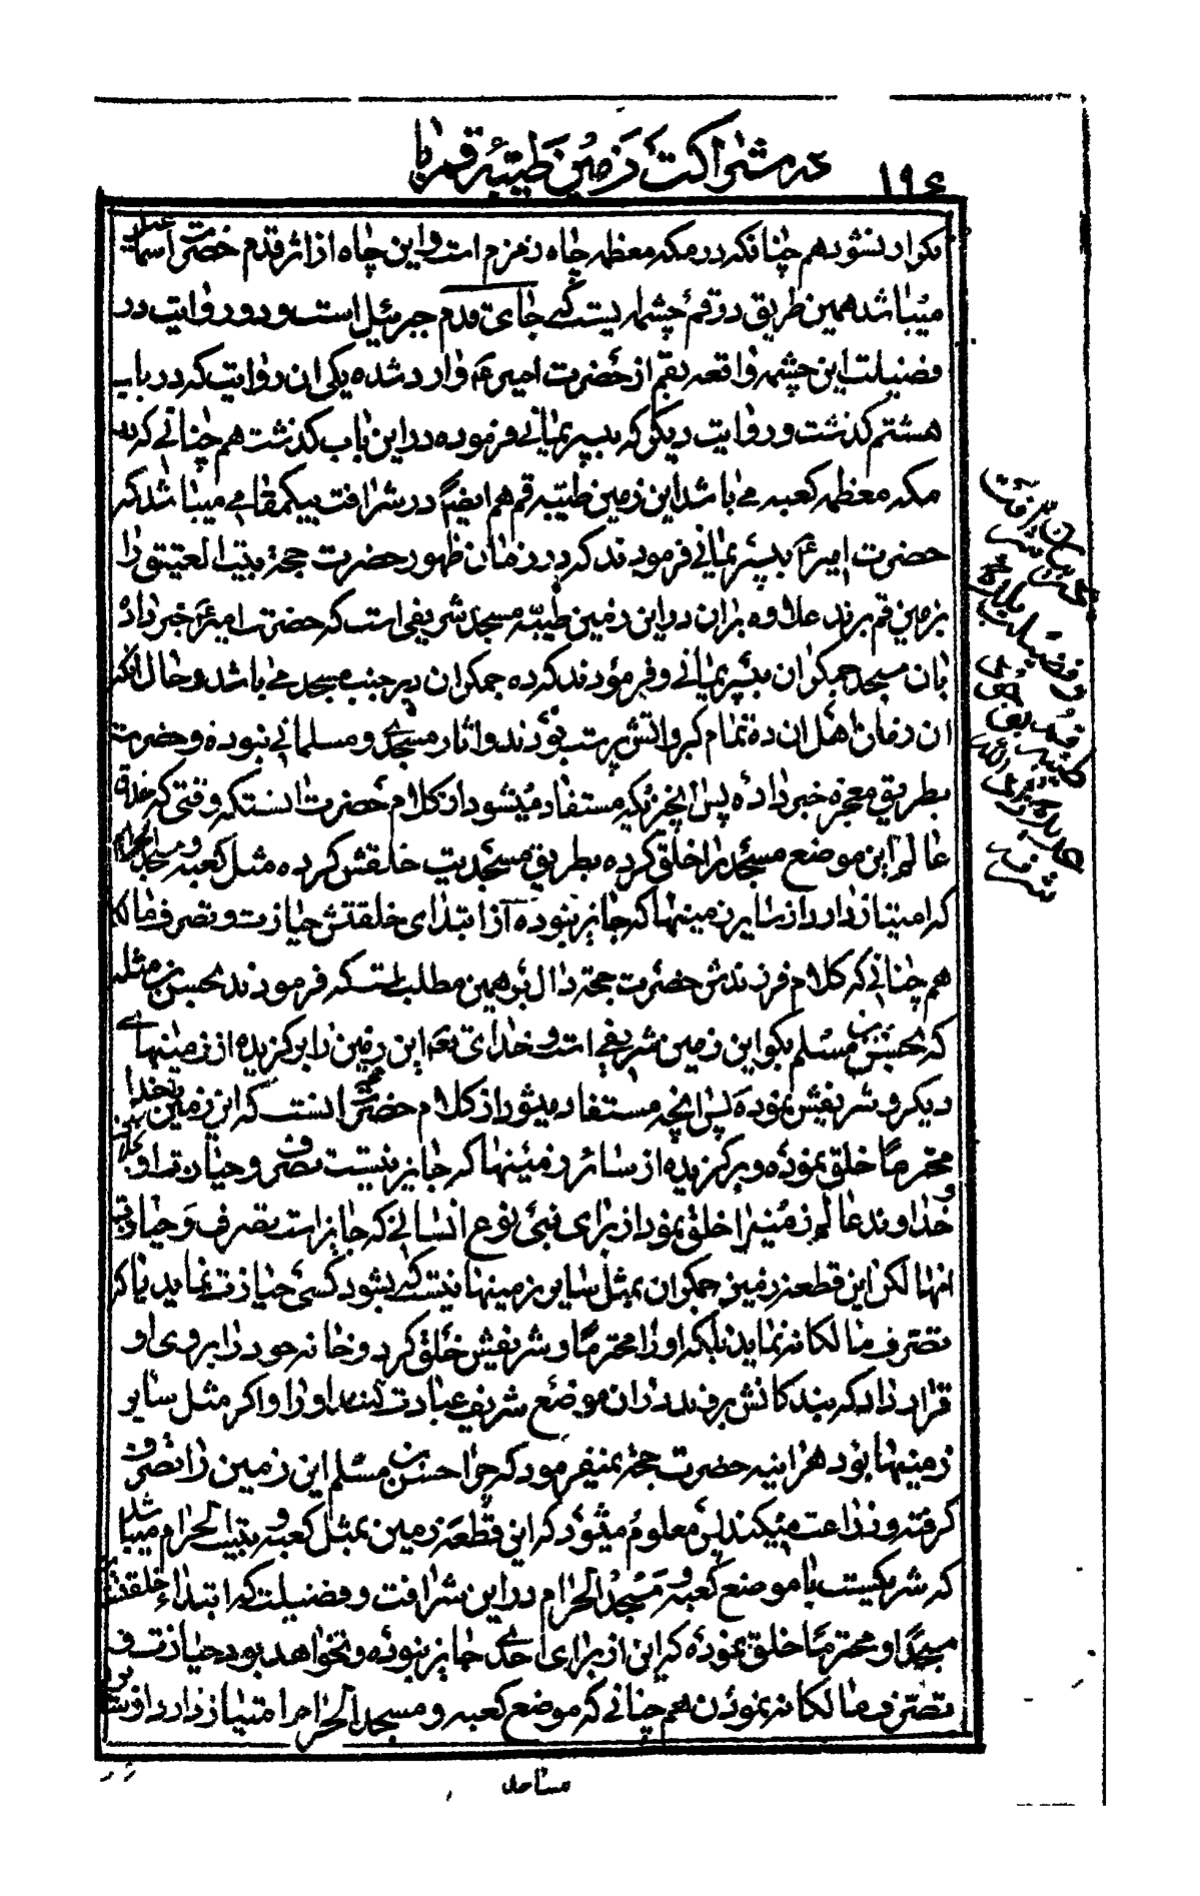 در شراکت زمین طیبه قم با ۱۹۶
تکرار نشود هم چنانکه در مکه معظمه چاه زمزم است و این چاه از اثر قدم حضرت اسماعیل
میباشد همین طریق در قم چشمه ایست که جای قدم جبرئیل است و دو روایت در
فضیلت این چشمه واقعه بقم از حضرت امیر ع وارد شده یکی ان روایت که در باب
هشتم کذشت و روایت دیکر که بپسر یمانی فرموده در این باب کذشت هم چنانی که
مکه معظمه کعبه می باشد این زمین طیبه قم هم ایضا در شرافت بیکمقامی میباشد که
حضرت امیر ع بپسر یمانی فرمودند که در زمان ظهور حضرت حجة بیت العتیق را
بزمین قم برند علاوه بران در این زمین طیبه مسجد شریفی است که حضرت امیر ع خبر داده
بان مسجد جمکران بپسر یمانی و فرمودند که ده جمکران در جنب مسجد می باشد و حال انکه
ان زمان اهل ان ده تمام کبر و اتش پرست بودند و اثار مسجدی و مسلمانی نبوده و حضرت
بطریق معجزه خبر داده پس انچیزیکه مستفاد میشود از کلام حضرت انستکه وقتی که خلاق
عالم این موضع مسجد را خلق کرده بطریق مسجدیت خلقش کرده مثل کعبه و مسجد الحرام
که امتیاز دارد از سایر زمینها که جایز نبوده از ابتدای خلقتش حیازت و تصرف مالکا
هم چنانی که کلام فرزندش حضرت حجة دال بر همین مطلب است که فرمودند بحسن بن مثله
که بحسن بن مسلم بکو این زمین شریفی است و خدای تعه این زمین را برکزیده از زمینهای
دیکر و شریفش نموده پس انچه مستفاد میشود از کلام حضرت حجة انست که این زمین را خدا
محترما خلق نموده و برکزیده از سائر زمینها که جایز نیست تصرف و حیازت او
و خداوند عالم زمینرا خلق نمود از برای بنی نوع انسانی که جایز است تصرف و حیازت
انها لکن این قطعه زمین جمکران بمثل سایر زمینها نیست که بشود کسی حیازت نماید یا که
تصرف مالکانه نماید بلکه او را محترما و شریفش خلق کرد و خانه خود را بر روی او
قرار داد که بندکانش برفند در ان موضع شریف عبادت کنند او را و اکر مثل سایر
زمینها بود هراینه حضرت حجة نمیفرمود که چرا حسن بن مسلم این زمین را تصرف
کرفته و زراعت میکند پس معلوم میشود که این قطعه زمین بمثل کعبه و بیت الحرام میباشد
که شریکست با موضع کعبه و مسجد الحرام در این شرافت و فضیلت که ابتداء خلقتش
مسجدا و محترما خلق نموده که این از برای احدی جایز نبوده و نخواهد بود حیازت و
تصرف مالکانه نمودن هم چنانی که موضع کعبه و مسجد الحرام امتیاز دارد از
مساجد
در بیان شرافت
و فضیلت
قم
طیبه
شرف